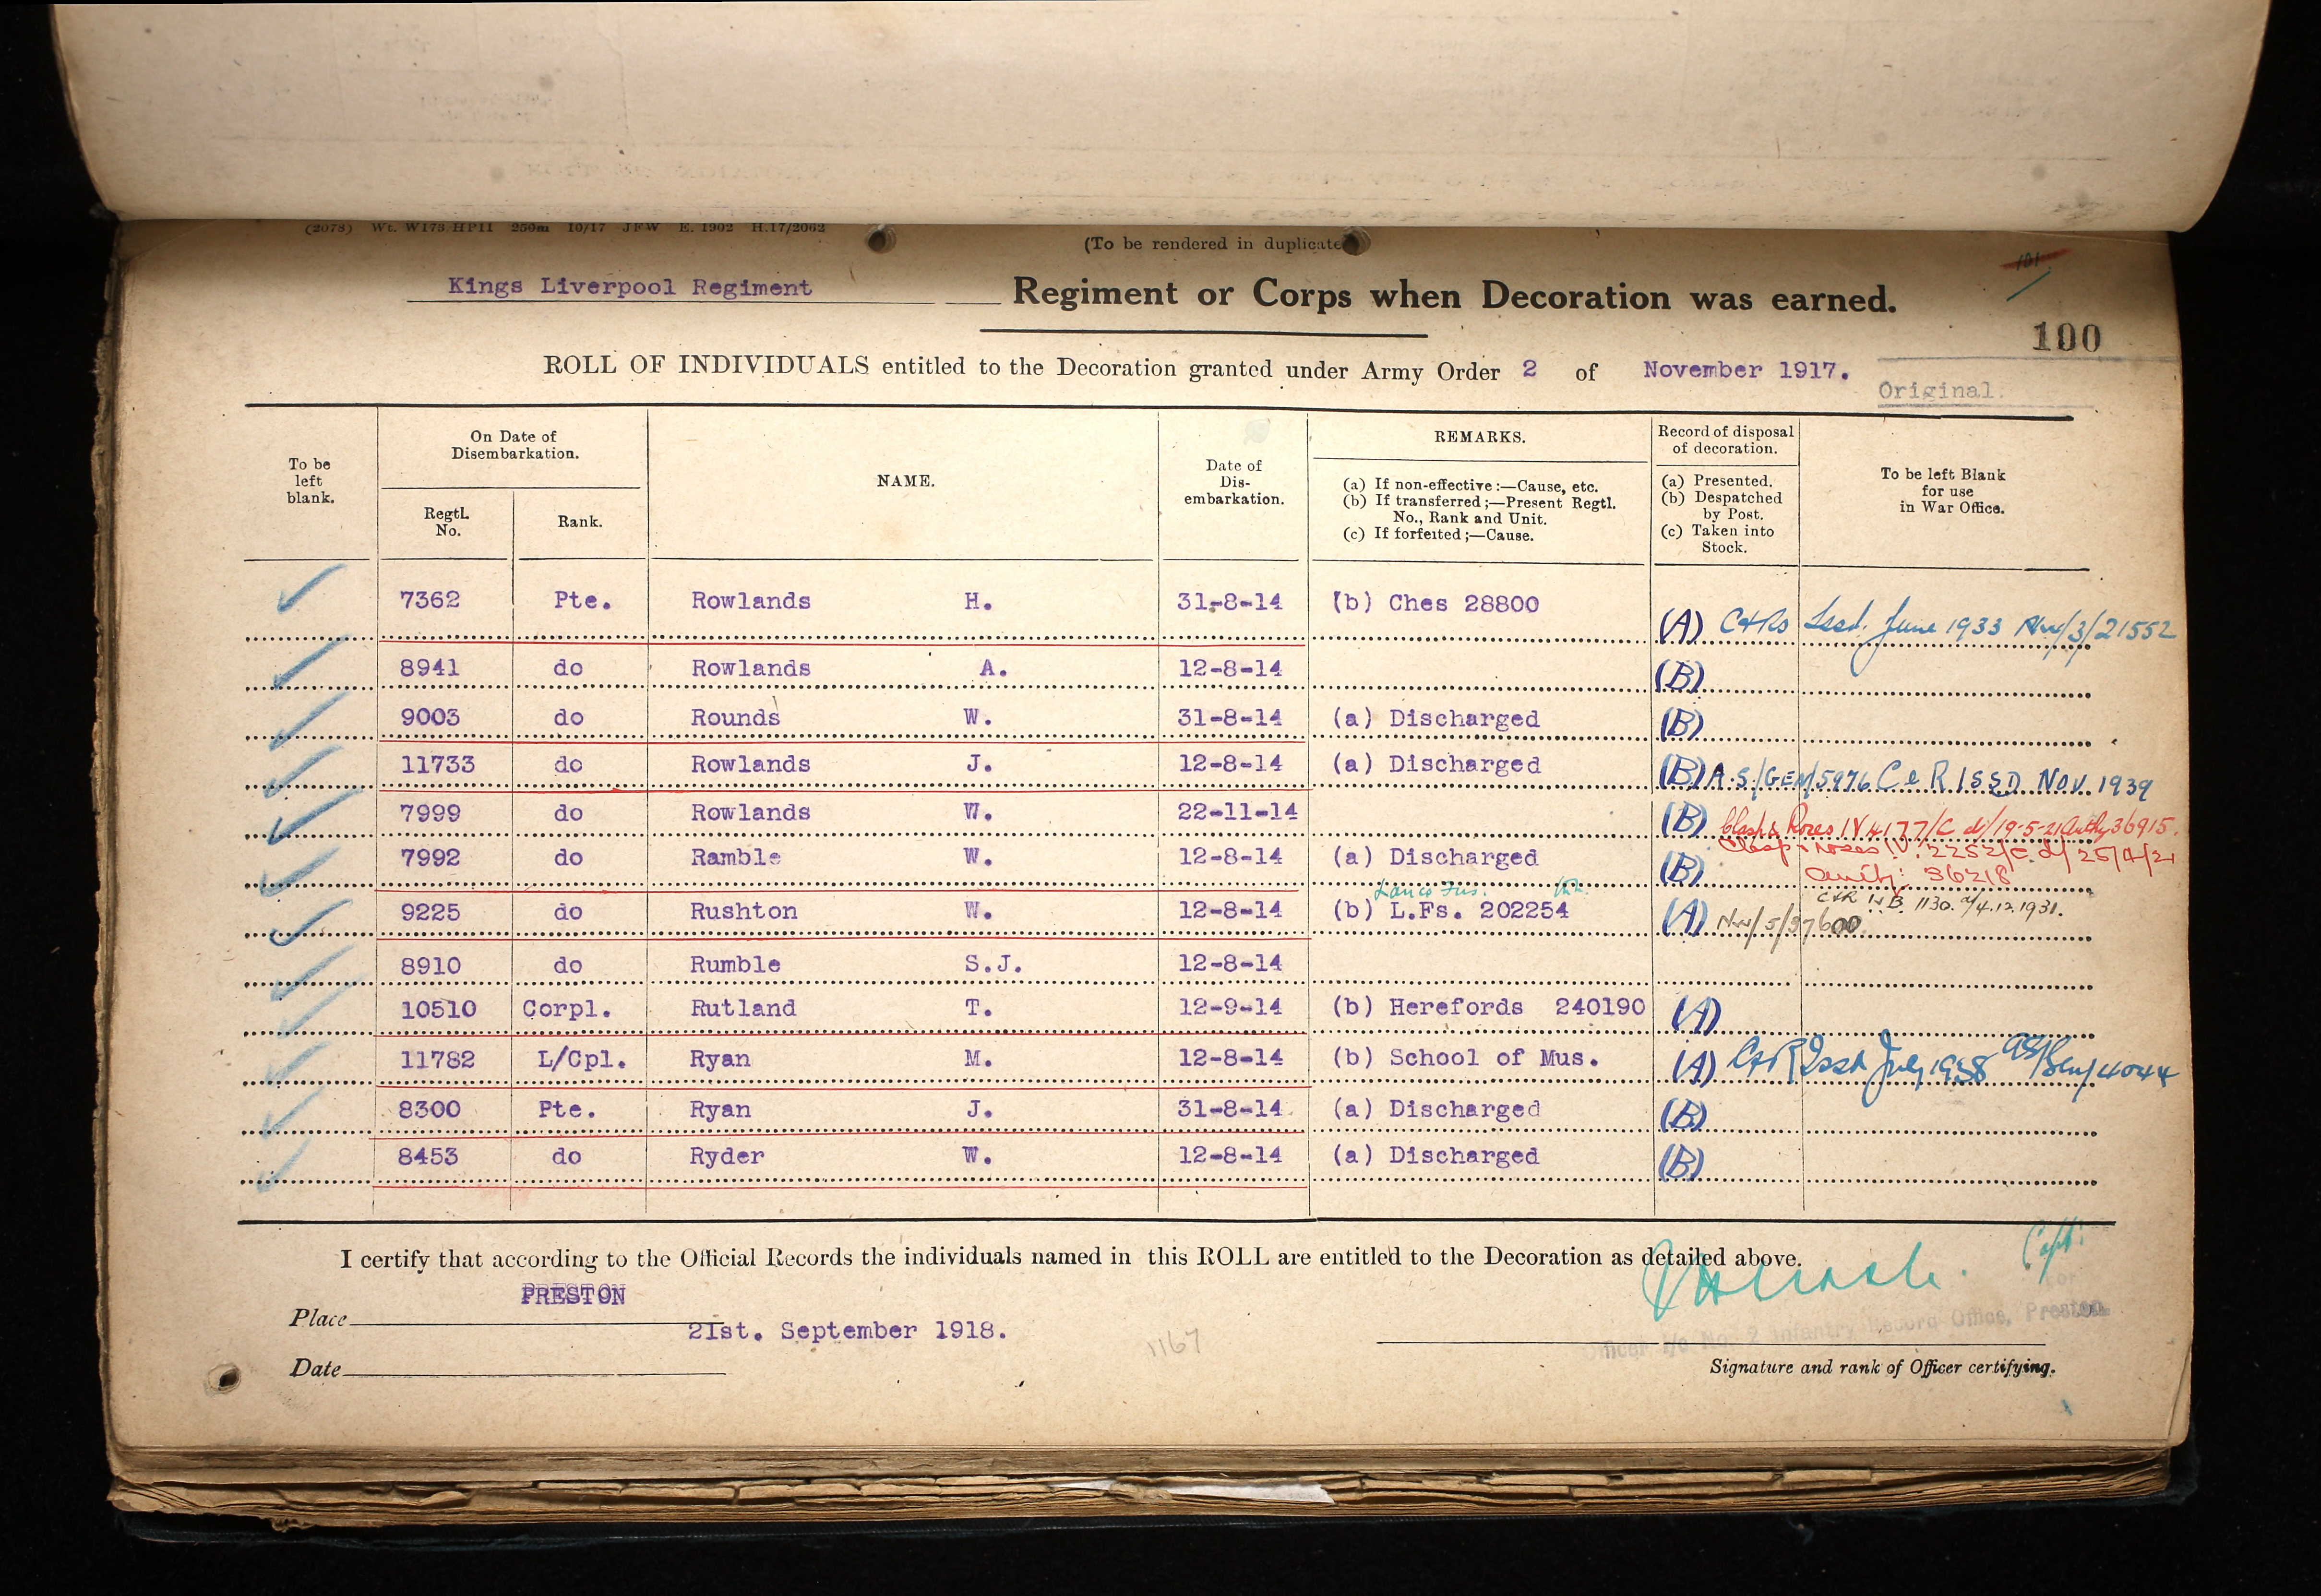 (2078) Wt. W173/HP11 250m 10/17 JFW E. 1902 H.17/2062
(To be rendered in duplicate
101
Kings Liverpool Regiment Regiment or Corps when Decoration was earned.
100
ROLL OF INDIVIDUALS entitled to the Decoration granted under Army Order 2 of November 1917.
Original
To be left blank.
On Date of Disembarkation.
Regtl. No.
Rank.
NAME.
Date of Dis-embarkation.
REMARKS.
(a) If non-effective:—Cause, etc.
(b) If transferred;—Present Regtl. No., Rank and Unit.
(c) If forfeited;—Cause.
Record of disposal of decoration.
(a) Presented.
(b) Despatched by Post.
(c) Taken into Stock.
To be left Blank for use in War Office.
7362 Pte. Rowlands H. 31-8-14 (b) Ches 28800
(A) C&Rs Issd. June 1933 NW/3/21552
8941 do Rowlands A. 12-8-14 (B)
9003 do Rounds W. 31-8-14 (a) Discharged (B)
11733 do Rowlands J. 12-8-14 (a) Discharged (B) A.S/GEN/5976 C & R ISSD NOV. 1939
7999 do Rowlands W. 22-11-14 (B) Clasp & Roses IV 4177/C d/19-5-21 Authy 36915.
Clasp & Roses IV. 2252/C. d/ 25/4/21
7992 do Ramble W. 12-8-14 (a) Discharged (B) Auth: 36218
Lanco Fus.
C&R I.V.B. 1130. d/4.12.1931.
9225 do Rushton W. 12-8-14 (b) L.Fs. 202254 (A) NW/5/37600
8910 do Rumble S.J. 12-8-14
10510 Corpl. Rutland T. 12-9-14 (b) Herefords 240190 (A)
11782 L/Cpl. Ryan M. 12-8-14 (b) School of Mus. (A) C&R Issd July 1938 4044
8300 Pte. Ryan J. 31-8-14 (a) Discharged (B)
8453 do Ryder W. 12-8-14 (a) Discharged (B)
I certify that according to the Official Records the individuals named in this ROLL are entitled to the Decoration as detailed above.
Capt:
for
PRESTON
Place
21st. September 1918.
1167
Officer i/c No. 2 Infantry Record Office, Preston.
Date
Signature and rank of Officer certifying.